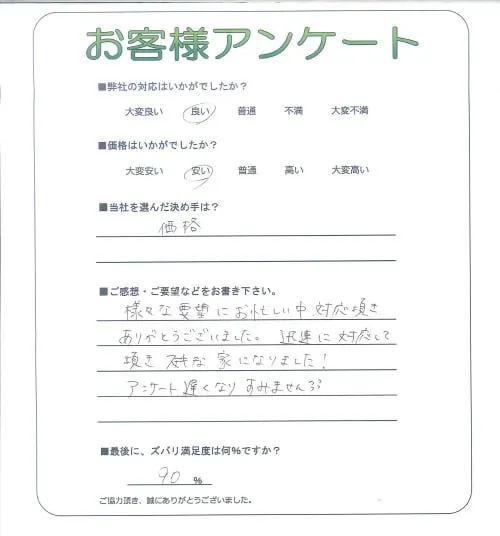 お客様アンケート
■弊社の対応はいかがでしたか？
大変良い 良い 普通 不満 大変不満
■価格はいかがでしたか？
大変安い 安い 普通 高い 大変高い
■当社を選んだ決め手は？
価格
■ご感想・ご要望などをお書き下さい。
様々な要望にお忙しい中 対応頂き
ありがとうございました。 迅速に対応して
頂き ステキな 家になりました！
アンケート 遅くなり すみません
■最後に、ズバリ満足度は何％ですか？
90 ％
ご協力頂き、誠にありがとうございました。